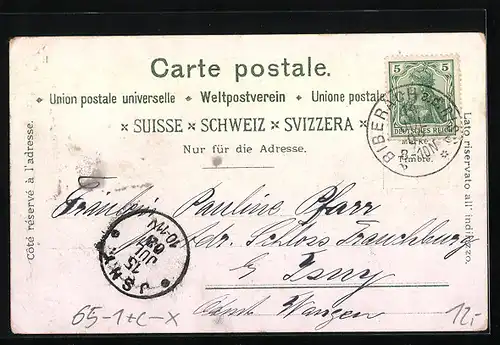 Carte postale.
Union postale universelle ✦ Weltpostverein ✦ Unione postale
SUISSE × SCHWEIZ × SVIZZERA
Nur für die Adresse.
Côté réservé à l'adresse.
Lato riservato all' indirizzo.
5 5
DEUTSCHES REICH
Marke
Timbre.
BIBERACH
Fräulein Pauline Pfarr
Adr. Schloss Trauchburg
Isny
Oberamt Wangen
ISNY
13
JUL
65-1+C-X
12,-